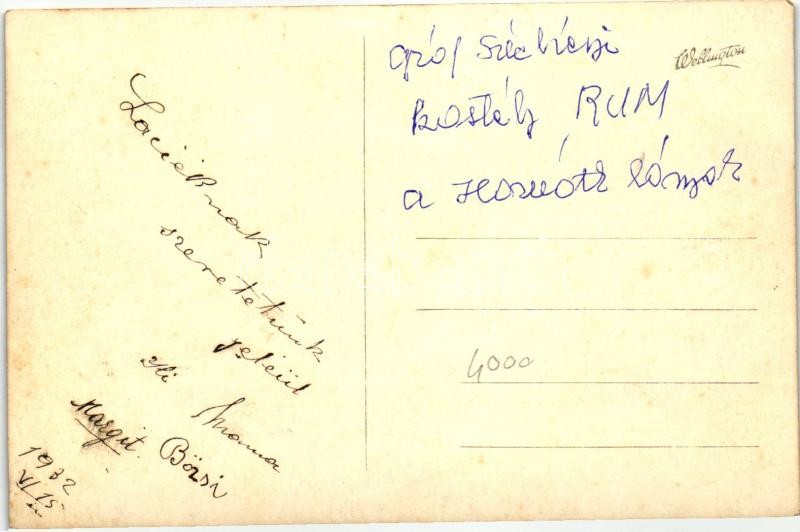 Laciéknak
szeretetünk
jeléül
Ili Mama
Margit. Bözsi
1932
VI/15
én
gróf Széchényi
kastély RUM
a Horváth lányok
Wellington
4000